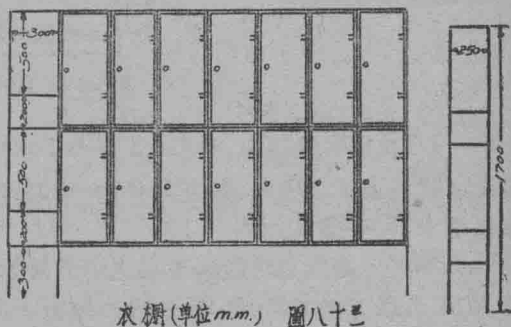 300
500
200
500
200
300
250
1700
衣櫥(单位m.m.) 圖八十三